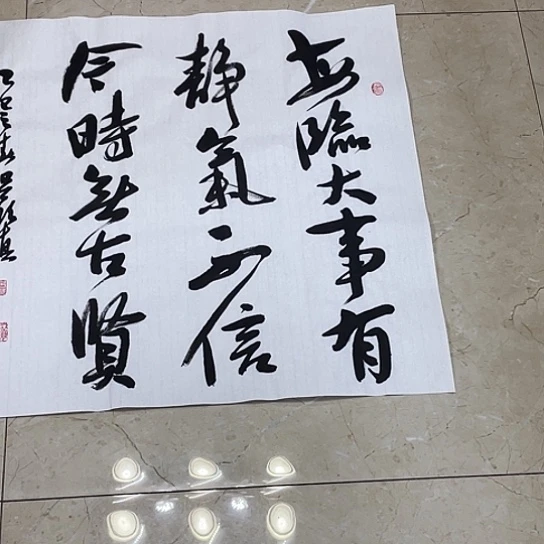 每臨大事有
靜氣不信
今時無古賢